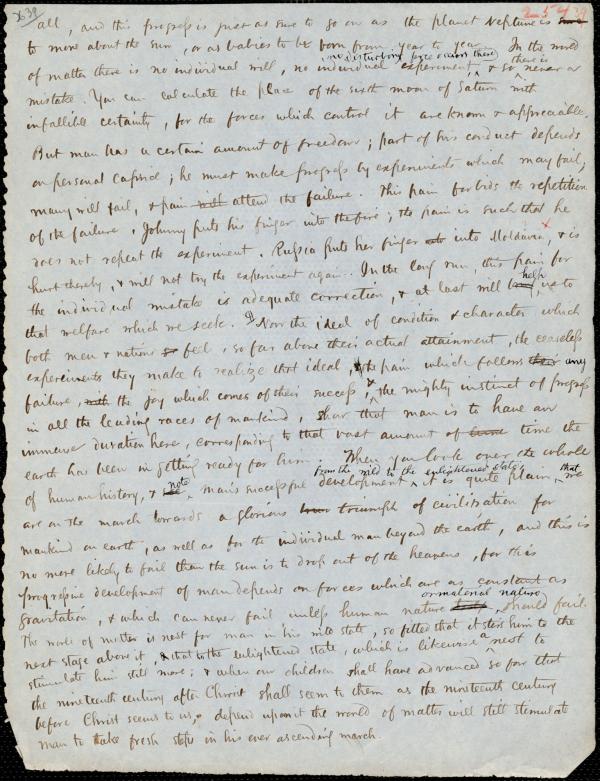 all, and this progress is just as sure to go on as the planet Neptune is
to move about the sun, or as babies to be born from year to year. In the world
no disturbing force occurs there
of matter there is no individual will, no individual experiment, & so there is never a
mistake. You can calculate the place of the sixth moon of Saturn with
infallible certainty, for the forces which control it are known & appreciable.
But man has a certain amount of freedom; part of his conduct depends
on personal caprice; he must make progress by experiments which may fail,
many will fail, & pain will attend the failure. This pain forbids the repetition
of the failure. Johnny puts his finger into the fire; the pain is such that he
does not repeat the experiment. Russia puts her finger into Moldavia, & is
hurt thereby, & will not try the experiment again. In the long run, this pain for
the individual mistake is adequate correction, & at last will help us to
that welfare which we seek. Now the ideal of condition & character which
both men & nations feel, so far above their actual attainment, the ceaseless
experiments they make to realize that ideal, the pain which follows any
failure, the joy which comes of their success, & the mighty instinct of progress
in all the leading races of mankind, show that man is to have an
immense duration here, corresponding to that vast amount of time the
earth has been in getting ready for him. When you look over the whole
from the wild to the enlightened state,
of human history, & note man's successful development, it is quite plain that we
are on the march towards a glorious triumph of civilization for
mankind on earth, as well as for the individual man beyond the earth, and this is
no more likely to fail than the sun is to drop out of the heavens, for this
progressive development of man depends on forces which are as constant as
or material nature
gravitation, & which can never fail unless human nature should fail.
The world of matter is nest for man in his wild state, so fitted that it stirs him to the
next stage above it, & that to the enlightened state, which is likewise a nest to
stimulate him still more; & when our children shall have advanced so far that
the nineteenth century after Christ shall seem to them as the nineteenth century
before Christ seems to us, depend upon it the world of matter will still stimulate
man to take fresh steps in his ever ascending march.